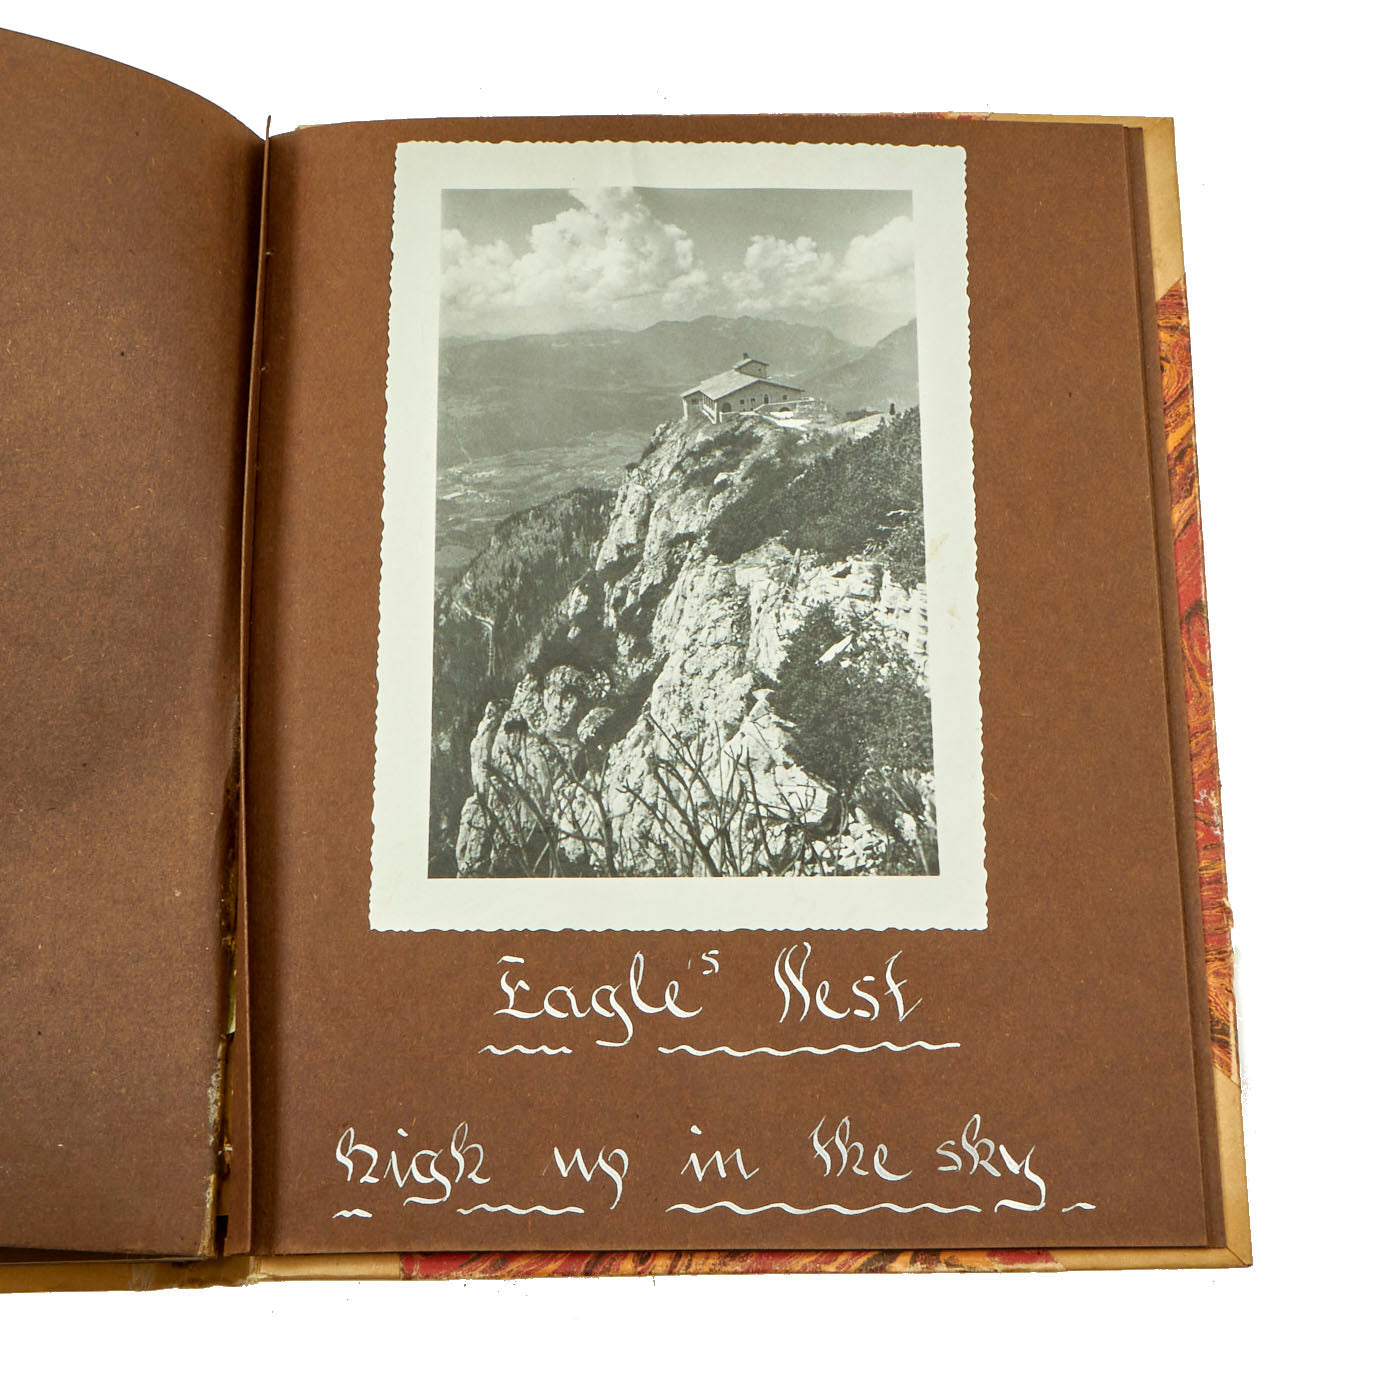 Eagle's Nest
high up in the sky